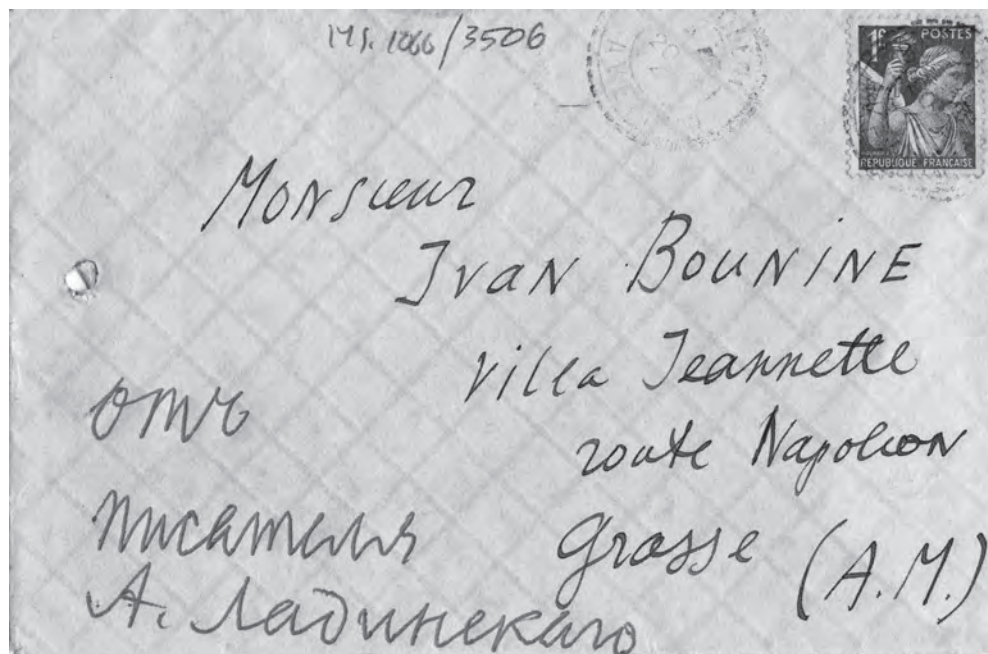 MS. 1066/3506
1F POSTES
RÉPUBLIQUE FRANÇAISE
Monsieur
Ivan BOUNINE
Villa Jeannette
route Napoleon
Grasse (A.M.)
отъ
писателя
А. Ладинскаго